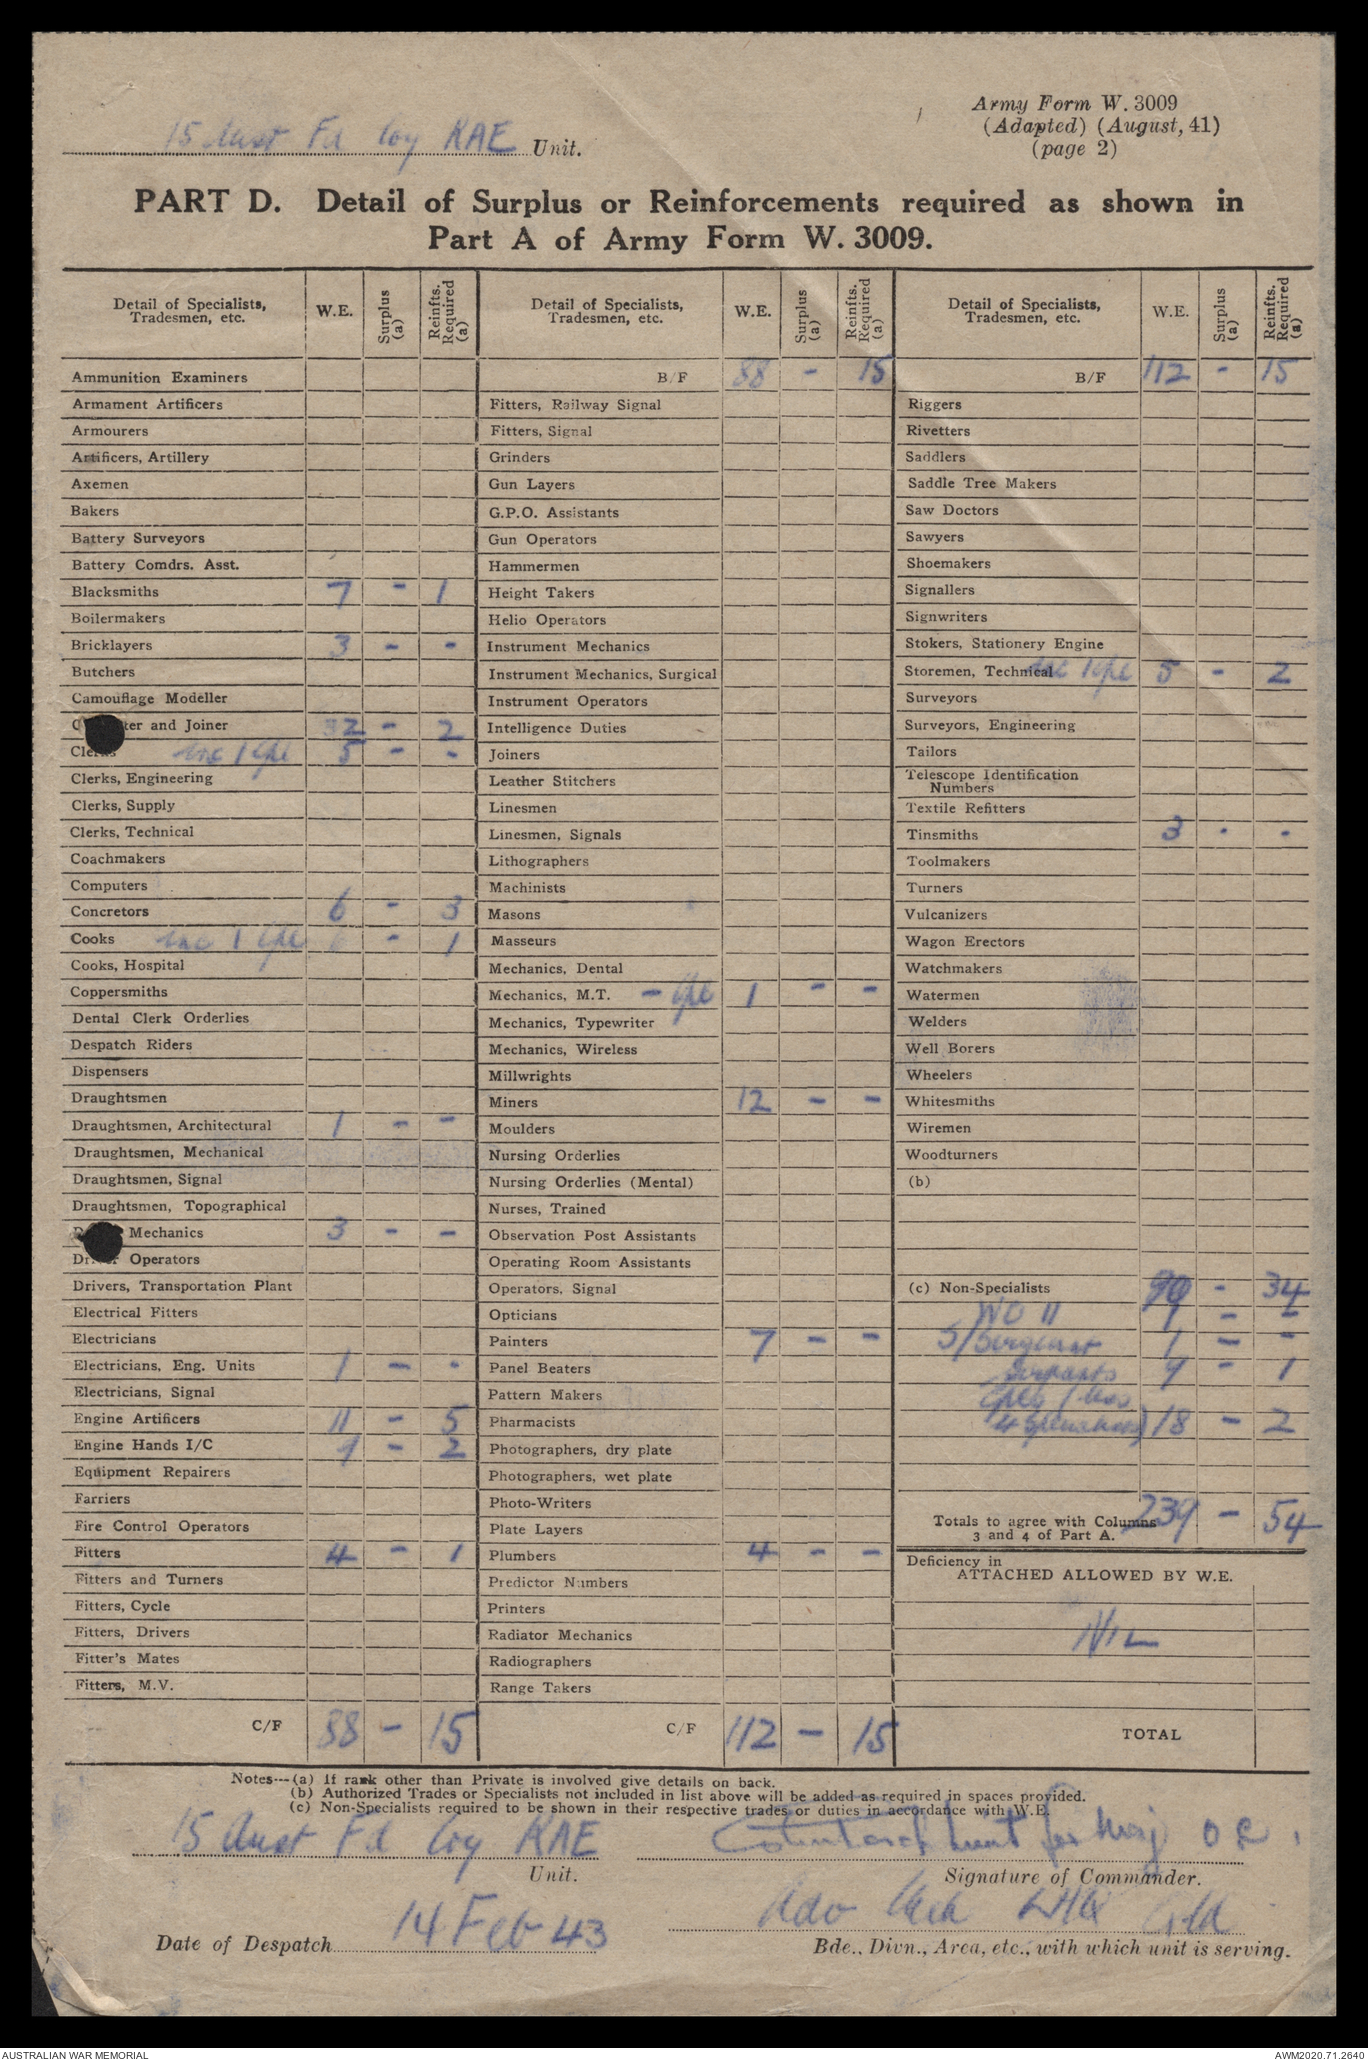 Army Form W. 3009
(Adapted) (August, 41)
(page 2)
15 Aust Fd Coy RAE Unit.
PART D. Detail of Surplus or Reinforcements required as shown in
Part A of Army Form W. 3009.
Detail of Specialists, Tradesmen, etc. W.E. Surplus (a) Reinfts. Required (a)
Ammunition Examiners
Armament Artificers
Armourers
Artificers, Artillery
Axemen
Bakers
Battery Surveyors
Battery Comdrs. Asst.
Blacksmiths 7 - 1
Boilermakers
Bricklayers 3 - -
Butchers
Camouflage Modeller
C ter and Joiner 32 - 2
Clerks inc 1 Cpl 5 - -
Clerks, Engineering
Clerks, Supply
Clerks, Technical
Coachmakers
Computers
Concretors 6 - 3
Cooks inc 1 Cpl 6 - 1
Cooks, Hospital
Coppersmiths
Dental Clerk Orderlies
Despatch Riders
Dispensers
Draughtsmen
Draughtsmen, Architectural 1 - -
Draughtsmen, Mechanical
Draughtsmen, Signal
Draughtsmen, Topographical
Mechanics 3 - -
Driver Operators
Drivers, Transportation Plant
Electrical Fitters
Electricians
Electricians, Eng. Units 1 - -
Electricians, Signal
Engine Artificers 11 - 5
Engine Hands I/C 9 - 2
Equipment Repairers
Farriers
Fire Control Operators
Fitters 4 - 1
Fitters and Turners
Fitters, Cycle
Fitters, Drivers
Fitter's Mates
Fitters, M.V.
C/F 88 - 15
Detail of Specialists, Tradesmen, etc. W.E. Surplus (a) Reinfts. Required (a)
B/F 88 - 15
Fitters, Railway Signal
Fitters, Signal
Grinders
Gun Layers
G.P.O. Assistants
Gun Operators
Hammermen
Height Takers
Helio Operators
Instrument Mechanics
Instrument Mechanics, Surgical
Instrument Operators
Intelligence Duties
Joiners
Leather Stitchers
Linesmen
Linesmen, Signals
Lithographers
Machinists
Masons
Masseurs
Mechanics, Dental
Mechanics, M.T. - Cpl 1 - -
Mechanics, Typewriter
Mechanics, Wireless
Millwrights
Miners 12 - -
Moulders
Nursing Orderlies
Nursing Orderlies (Mental)
Nurses, Trained
Observation Post Assistants
Operating Room Assistants
Operators, Signal
Opticians
Painters 7 - -
Panel Beaters
Pattern Makers
Pharmacists
Photographers, dry plate
Photographers, wet plate
Photo-Writers
Plate Layers
Plumbers 4 - -
Predictor Numbers
Printers
Radiator Mechanics
Radiographers
Range Takers
C/F 112 - 15
Detail of Specialists, Tradesmen, etc. W.E. Surplus (a) Reinfts. Required (a)
B/F 112 - 15
Riggers
Rivetters
Saddlers
Saddle Tree Makers
Saw Doctors
Sawyers
Shoemakers
Signallers
Signwriters
Stokers, Stationery Engine
Storemen, Technical inc 1 Cpl 5 - 2
Surveyors
Surveyors, Engineering
Tailors
Telescope Identification
Numbers
Textile Refitters
Tinsmiths 3 - -
Toolmakers
Turners
Vulcanizers
Wagon Erectors
Watchmakers
Watermen
Welders
Well Borers
Wheelers
Whitesmiths
Wiremen
Woodturners
(b)
(c) Non-Specialists 90 - 34
WO II 1 - -
S/Sergeant 1 - -
Sergeants 9 - 1
Cpls (less
4 Specialists) 18 - 2
Totals to agree with Columns 239 - 54
3 and 4 of Part A.
Deficiency in
ATTACHED ALLOWED BY W.E.
NIL
TOTAL
Notes---(a) If rank other than Private is involved give details on back.
(b) Authorized Trades or Specialists not included in list above will be added as required in spaces provided.
(c) Non-Specialists required to be shown in their respective trades or duties in accordance with W.E.
15 Aust Fd Coy RAE
Unit.
Lieut for Maj OC.
Signature of Commander.
14 Feb 43
Date of Despatch
Bde., Divn., Area, etc., with which unit is serving.
AUSTRALIAN WAR MEMORIAL
AWM2020.71.2640